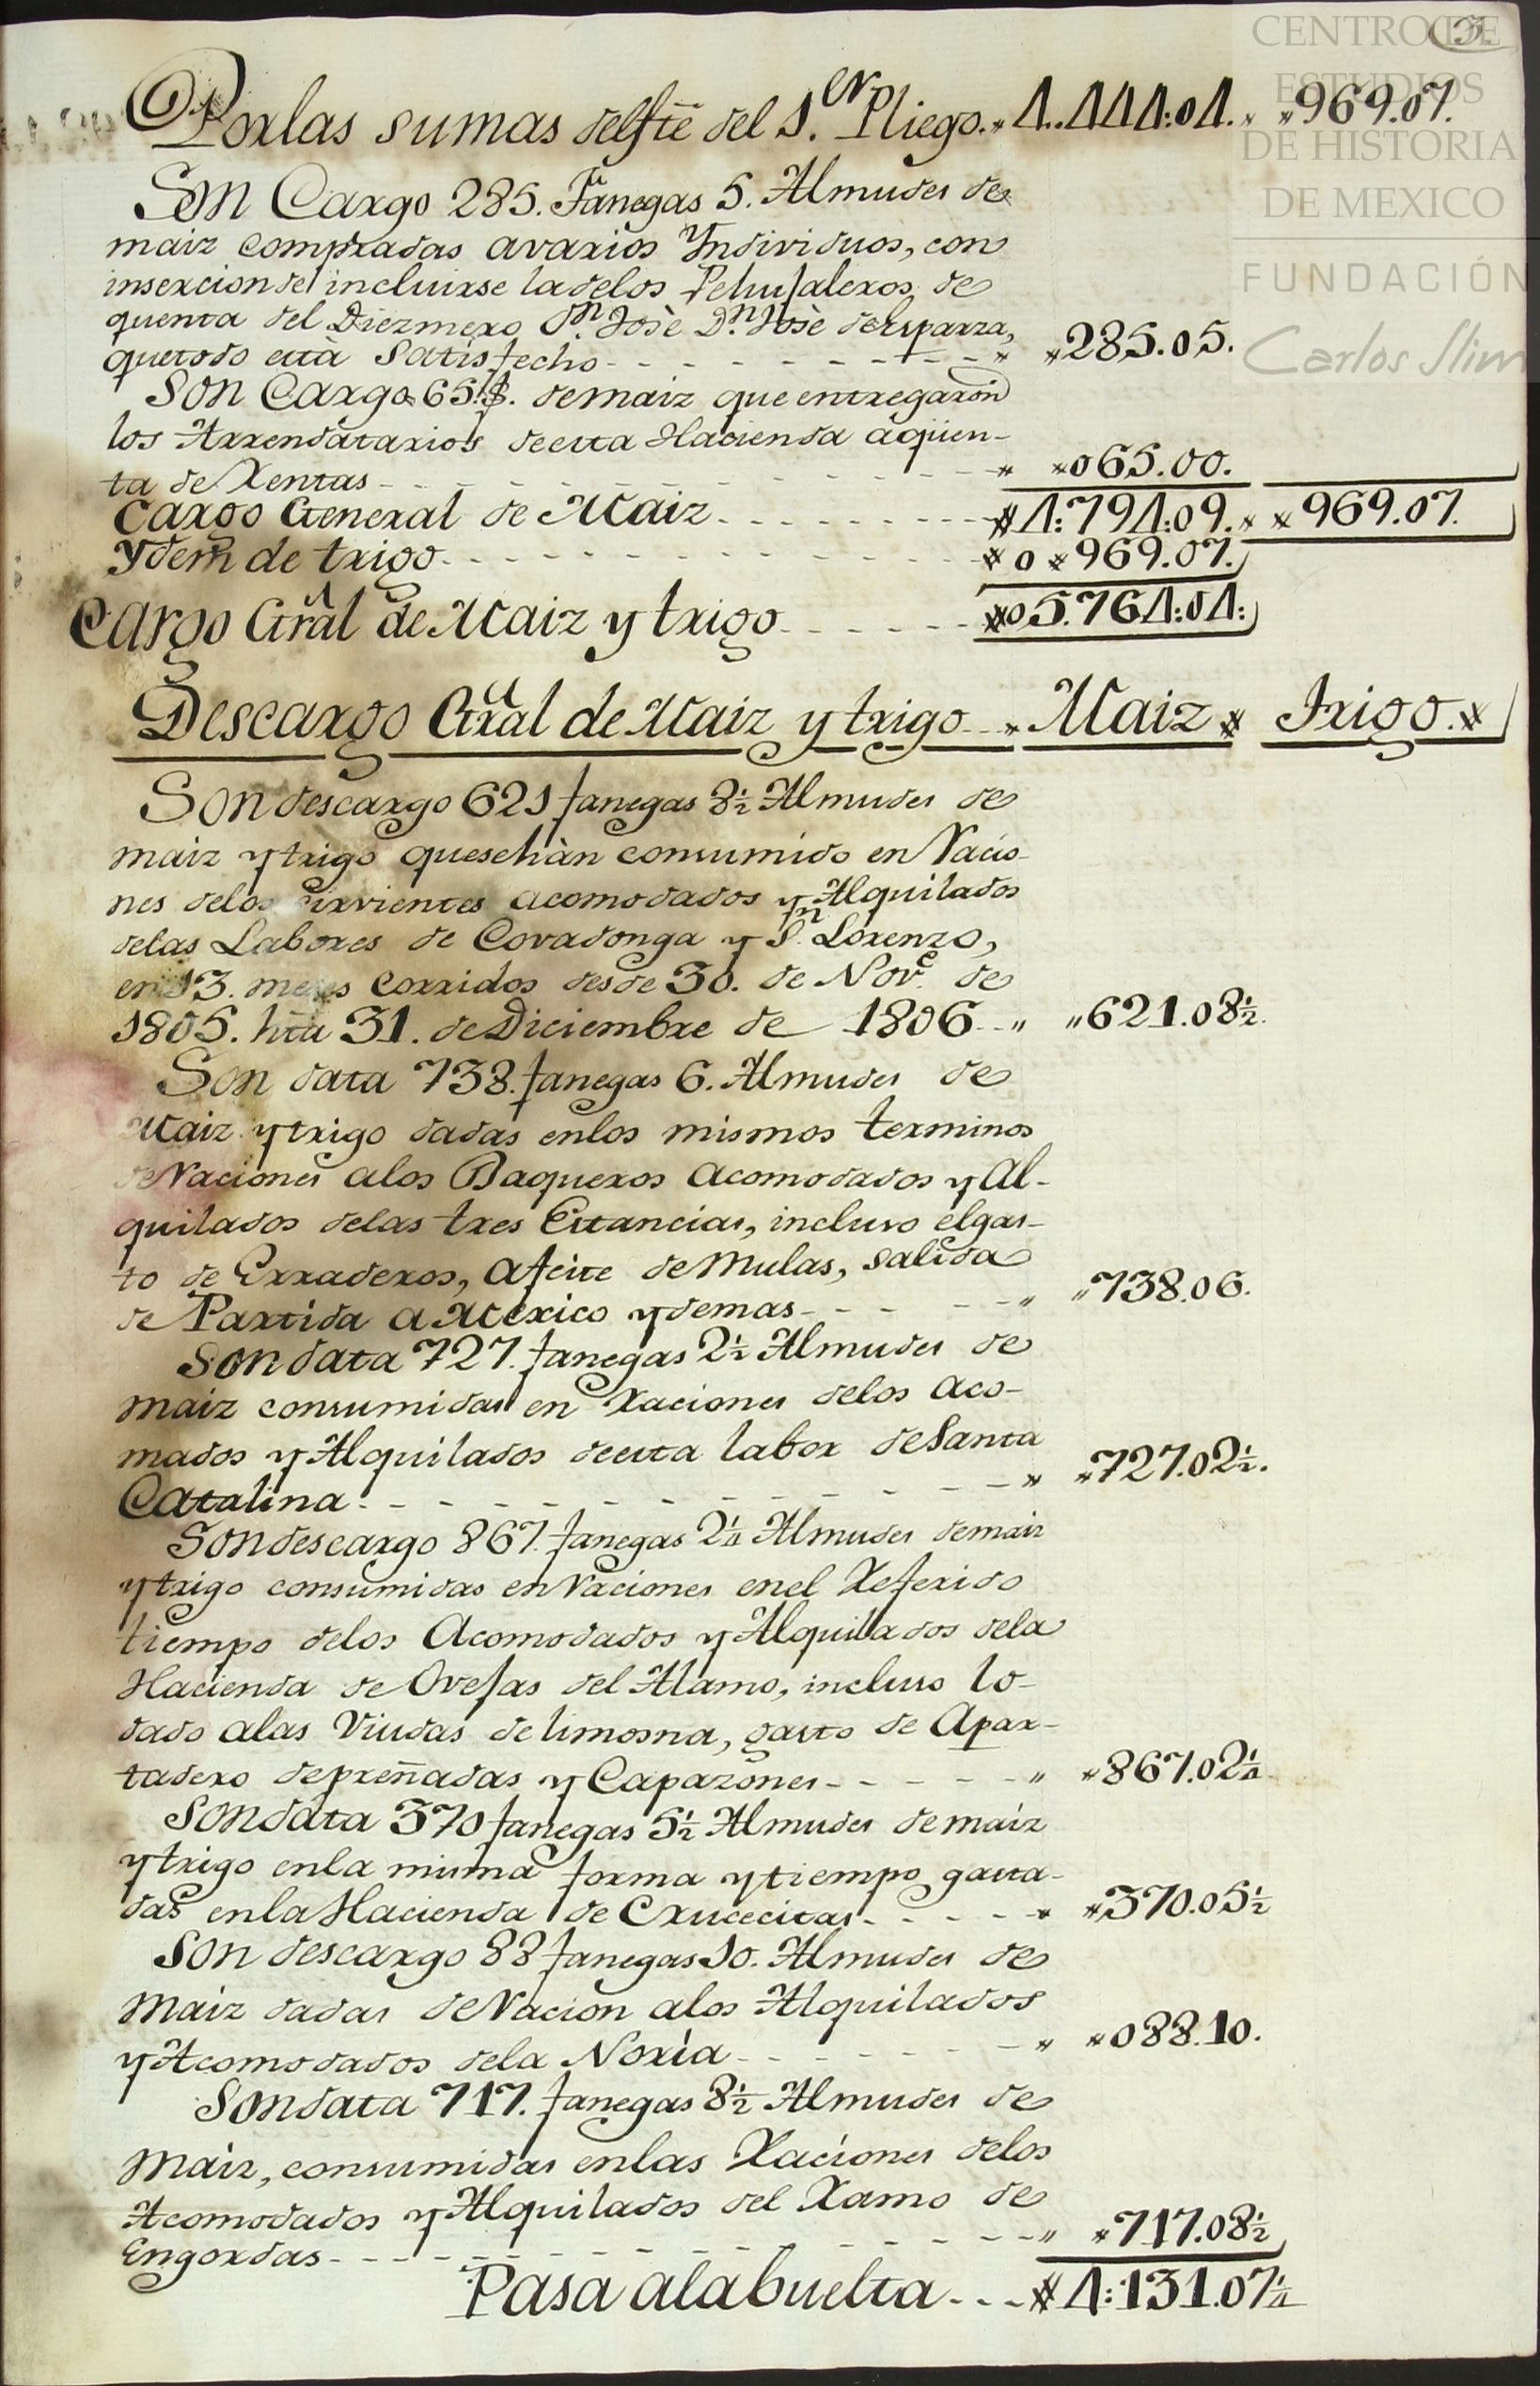 CENTRO DE
ESTUDIOS
DE HISTORIA
DE MEXICO
FUNDACIÓN
Carlos Slim
3.
Por las sumas delfte del 1.er Pliego. " 4..444:04. " "969.07.
Son Cargo 285. Fanegas 5. Almudes de
maiz compradas avarios Yndividuos, con
insercion de incluirse la delos Pehujaleros de
quenta del Diezmero Dn. Josè Dn. Josè de Esparza,
quetodo està satisfecho - - - " "285.05.
Son Cargo 65. f. demaiz que entregaron
los Arrendatarios deesta Hacienda aqüen-
ta de Rentas - - - " "065.00.
Cargo General de Maiz - - - " 4:794:09. " "969.07.
Ydem de trigo - - - " 0 "969.07.
Cargo Gral de Maiz y trigo - - - "05.764:04:
Descargo Gral de Maiz y trigo - " Maiz " Trigo. "
Son descargo 621 fanegas 8½ Almudes de
maiz y trigo quesehàn consumido en Racio-
nes delos sirvientes acomodados y Alquilados
delas Labores de Covadonga y Sn. Lorenzo,
en 13. meses corridos desde 30. de Nove. de
1805. hta 31. de Diciembre de 1806 - " "621.08½.
Son data 738. fanegas 6. Almudes de
Maiz y trigo dadas enlos mismos terminos
de Raciones alos Baqueros acomodados y Al-
quilados delas tres Estancias, incluso èlgas-
to de Erraderos, afeite de Mulas, salida
de Partida a Mexico y demas - - - " "738.06.
Son data 727. fanegas 2½ Almudes de
maiz consumidas en Raciones delos aco-
mados y Alquilados deesta labor de Santa
Catalina - - - " "727.02½.
Son descargo 867. fanegas 2¼ Almudes demaiz
y trigo consumidas en Raciones enel Referido
tiempo delos Acomodados y Alquilados dela
Hacienda de Ovejas del Alamo, incluso lo-
dado alas Viudas de limosna, gasto de Apar-
tadero depreñadas y Capazones - - - " "867.02¼
Son data 370 fanegas 5½ Almudes de maiz
y trigo enla misma forma y tiempo gasta-
das enla Hacienda de Crucecitas - - - " "370.05½
Son descargo 88 fanegas 10. Almudes de
Maiz dadas de Racion alos Alquilados
y Acomodados dela Noria - - - " "088.10.
Son data 717. fanegas 8½ Almudes de
Maiz, consumidas enlas Raciones delos
Acomodados y Alquilados del Ramo de
Engordas - - - " "717.08½
Pasa alabuelta - - - " 4:131.07¼